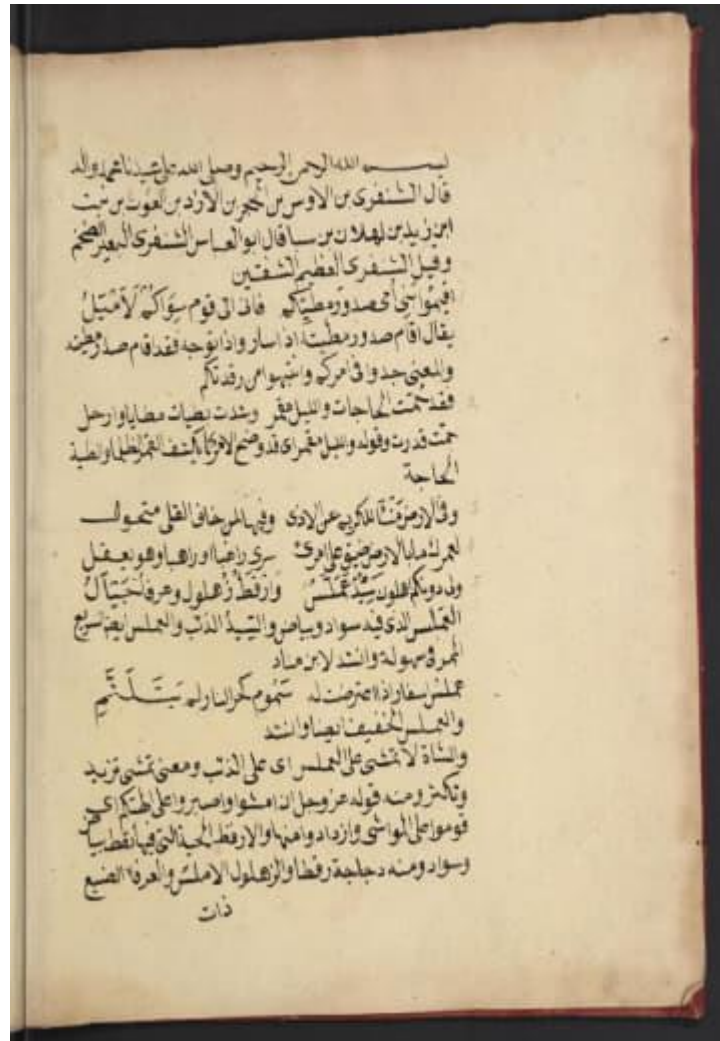 بسم الله الرحمن الرحيم وصلى الله على سيدنا محمد واله
قال الشنفرى بن الاوس بن الحجر بن الازد بن الغوث بن نبت
ابن زيد بن كهلان بن سبا قال ابو العباس الشنفرى البعير الضخم
وقيل الشنفرى العظيم الشفتين
اقيموا بنى امى صدور مطيكم فانى الى قوم سواكم لأميل
يقال اقام صدور مطيته اذا سار واذا توجه فقد اقام صدور مطيته
والمعنى جدوا فى امركم وانتبهوا من رقدتكم
فقد حمت الحاجات والليل مقمر وشدت لطيات مطايا وارحل
حمت قدرت وقوله والليل مقمر اى قد وضح الامر كما يكشف القمر الظلما والطية
الحاجة
وفى الارض منأى للكريم عن الاذى وفيها لمن خاف القلى متحول
لعمرك ما بالارض ضيق على امرئ سرى راغبا او راهبا وهو يعقل
ولى دونكم اهلون سيد عملس وارقط زهلول وعرفا جيأل
العملس الذى فيه سواد وبياض والسيد الذئب والعملس ايضا السريع
المر فى سهولة وانشد لابن مياد
عملس اسفار اذا اعترضت له سموم كحر النار لم يتلثم
والعملس الخفيف ايضا وانشد
والشاة لا تمشى على العملس اى على الذئب ومعنى تمشى تزيد
وتكثر ومنه قوله عز وجل ان امشوا واصبروا على الهتكم اى
قوموا على المواشى وازدادوا منها والارقط الحية التى فيها نقط بياض
وسواد ومنه دجاجة رقطا والزهلول الاملس والعرفا الضبع
ذات